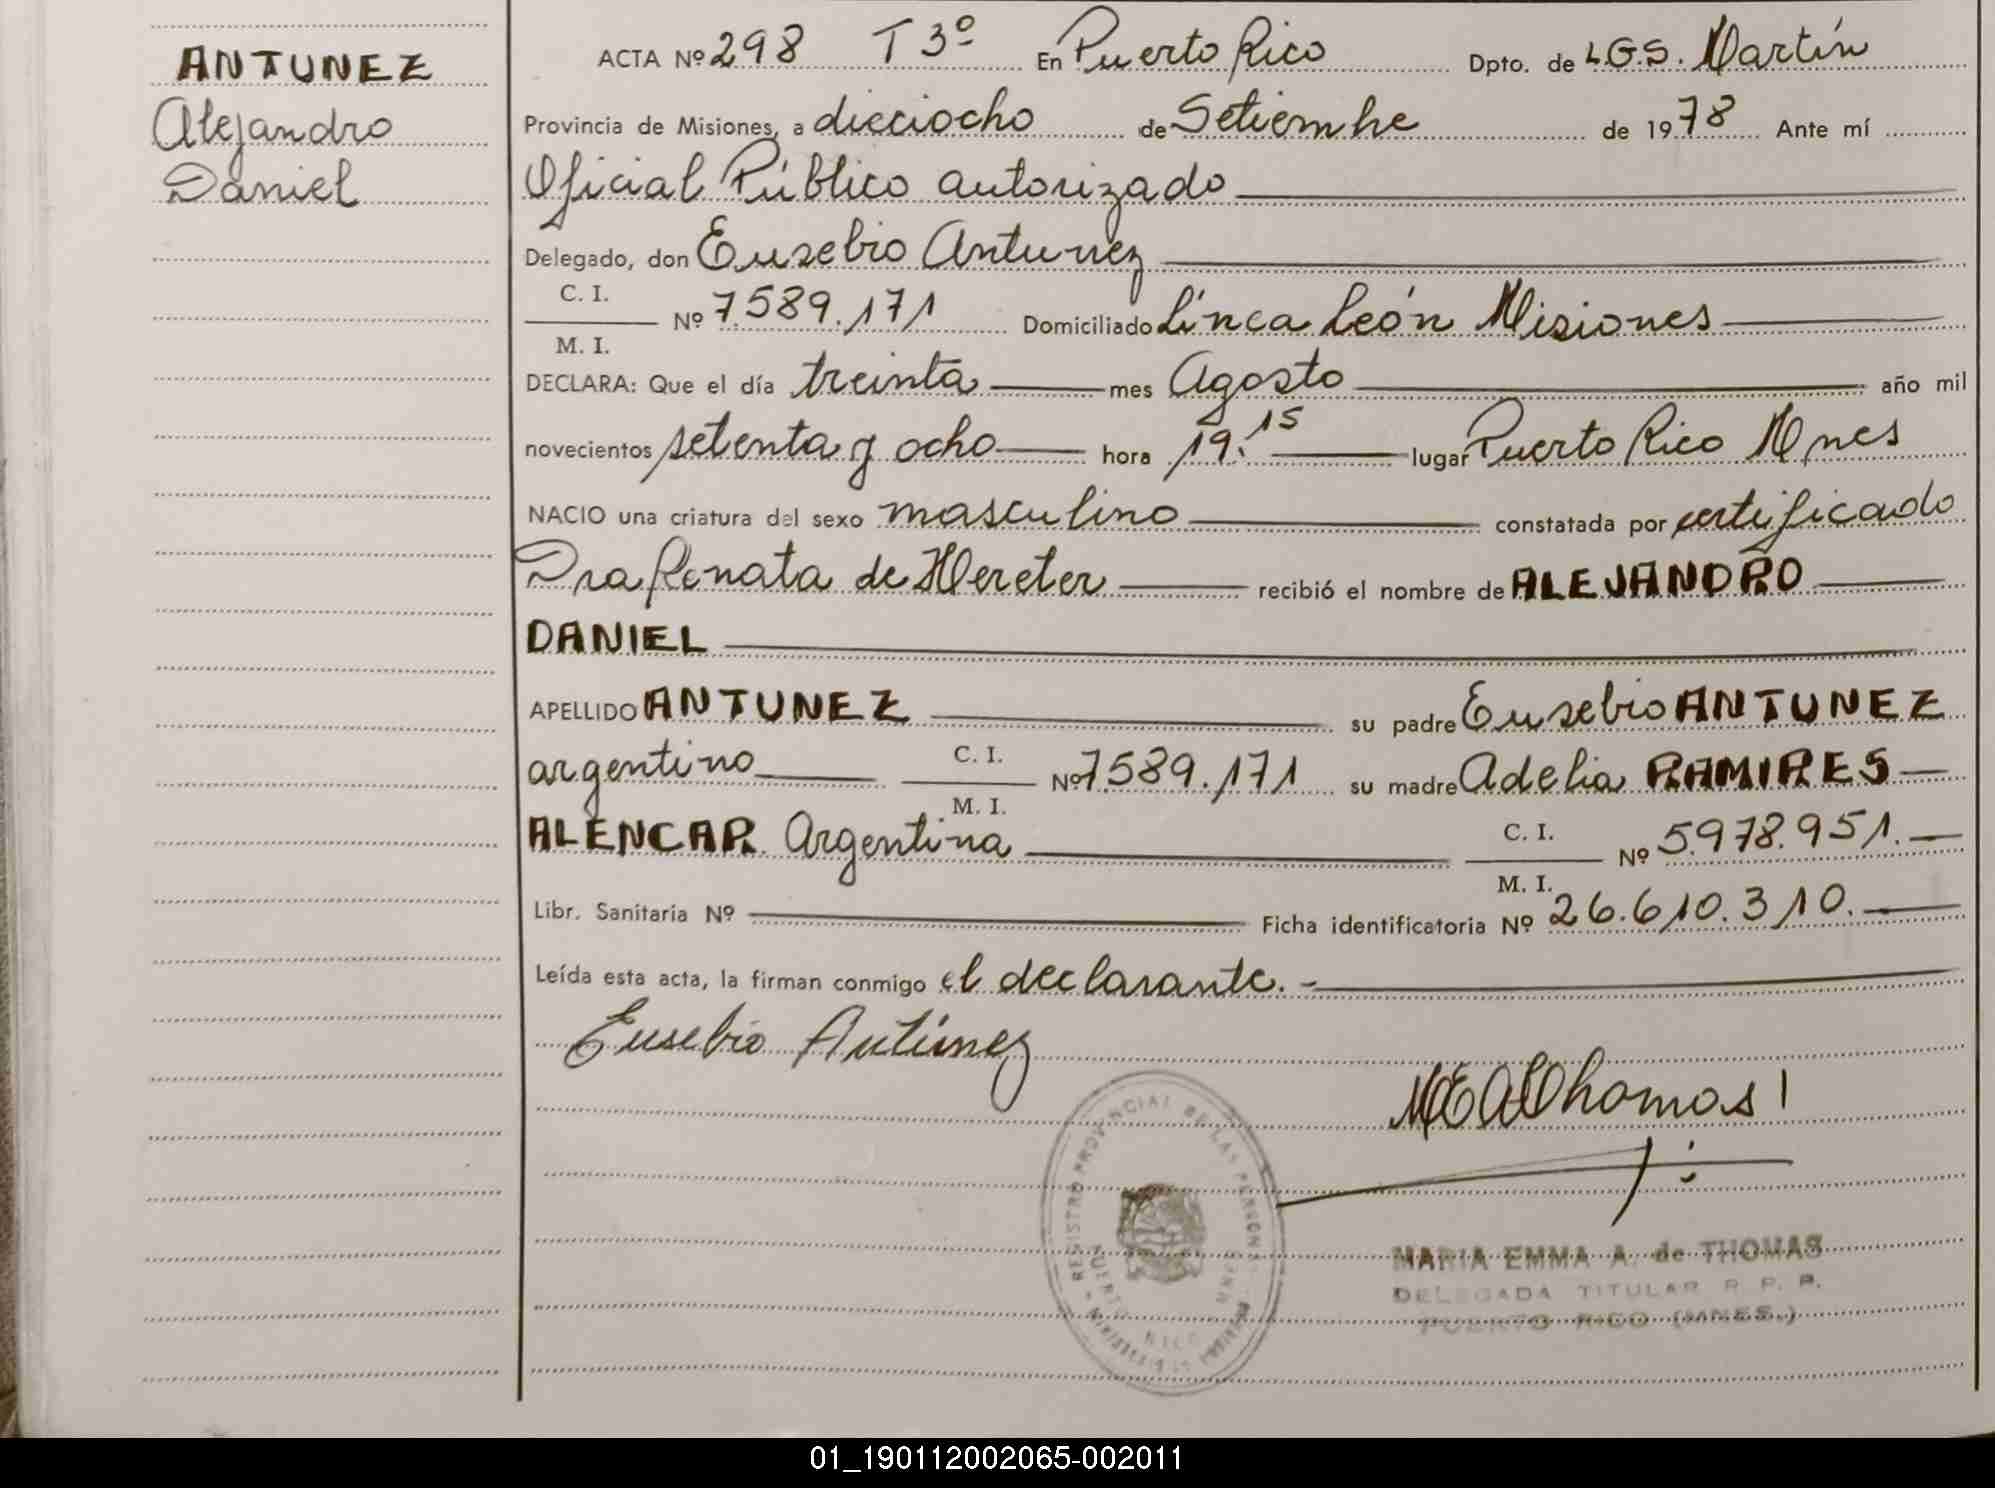 ANTUNEZ
Alejandro
Daniel
ACTA Nº 298 T 3º En Puerto Rico Dpto. de L.G.S. Martín
Provincia de Misiones, a dieciocho de Setiembre de 1978 Ante mí
Oficial Público autorizado
Delegado, don Eusebio Antunez
C. I.
Nº 7.589.171 Domiciliado Línea León Misiones
M. I.
DECLARA: Que el día treinta mes Agosto año mil
novecientos setenta y ocho hora 19.15 lugar Puerto Rico Mnes
NACIO una criatura del sexo masculino constatada por certificado
Dra Renata de Hereter recibió el nombre de ALEJANDRO
DANIEL
APELLIDO ANTUNEZ su padre Eusebio ANTUNEZ
argentino C. I. Nº 7.589.171 su madre Adelia RAMIRES
M. I.
ALENCAR Argentina C. I. Nº 5.978.951.
M. I.
Libr. Sanitaria Nº Ficha identificatoria Nº 26.610.310.
Leída esta acta, la firman conmigo el declarante.
Eusebio Antúnez
MEAThomas
REGISTRO PROVINCIAL DE LAS PERSONAS
PUERTO RICO MNES
MARIA EMMA A. de THOMAS
DELEGADA TITULAR R. P. P.
PUERTO RICO (MNES.)
01_190112002065-002011